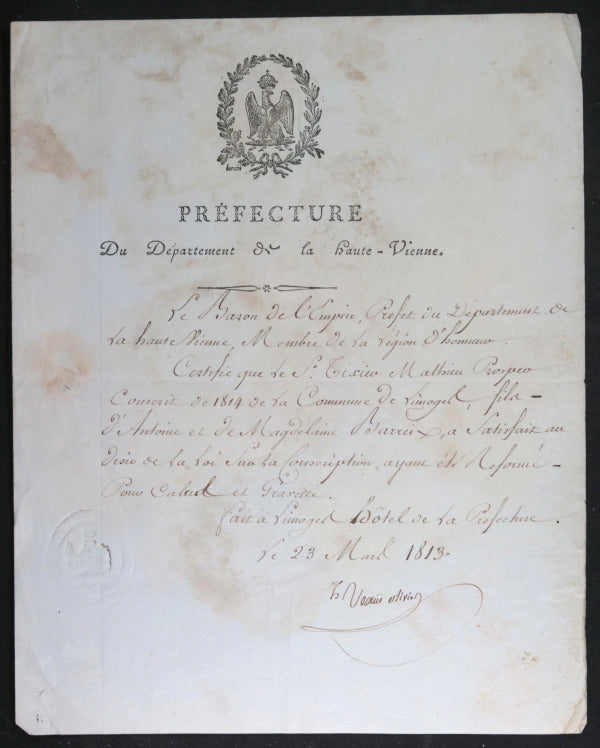 PRÉFECTURE
Du Département de la haute-Vienne.
Le Baron de l'Empire, Prefet du Département de
La haute Vienne, Membre de La Légion d'honneur.
Certifie que Le Sr. Tixier Mathieu Prosper
Conscrit de 1814 de La Commune de Limoges, fils -
d'Antoine et de Magdelaine Barreix, a Satisfait au
droit de La Loi Sur La Conscription, ayant été Réformé -
Pour Calcul et Gravelle.
fait à Limoges hôtel de La Prefecture.
Le 23 Mars 1813.